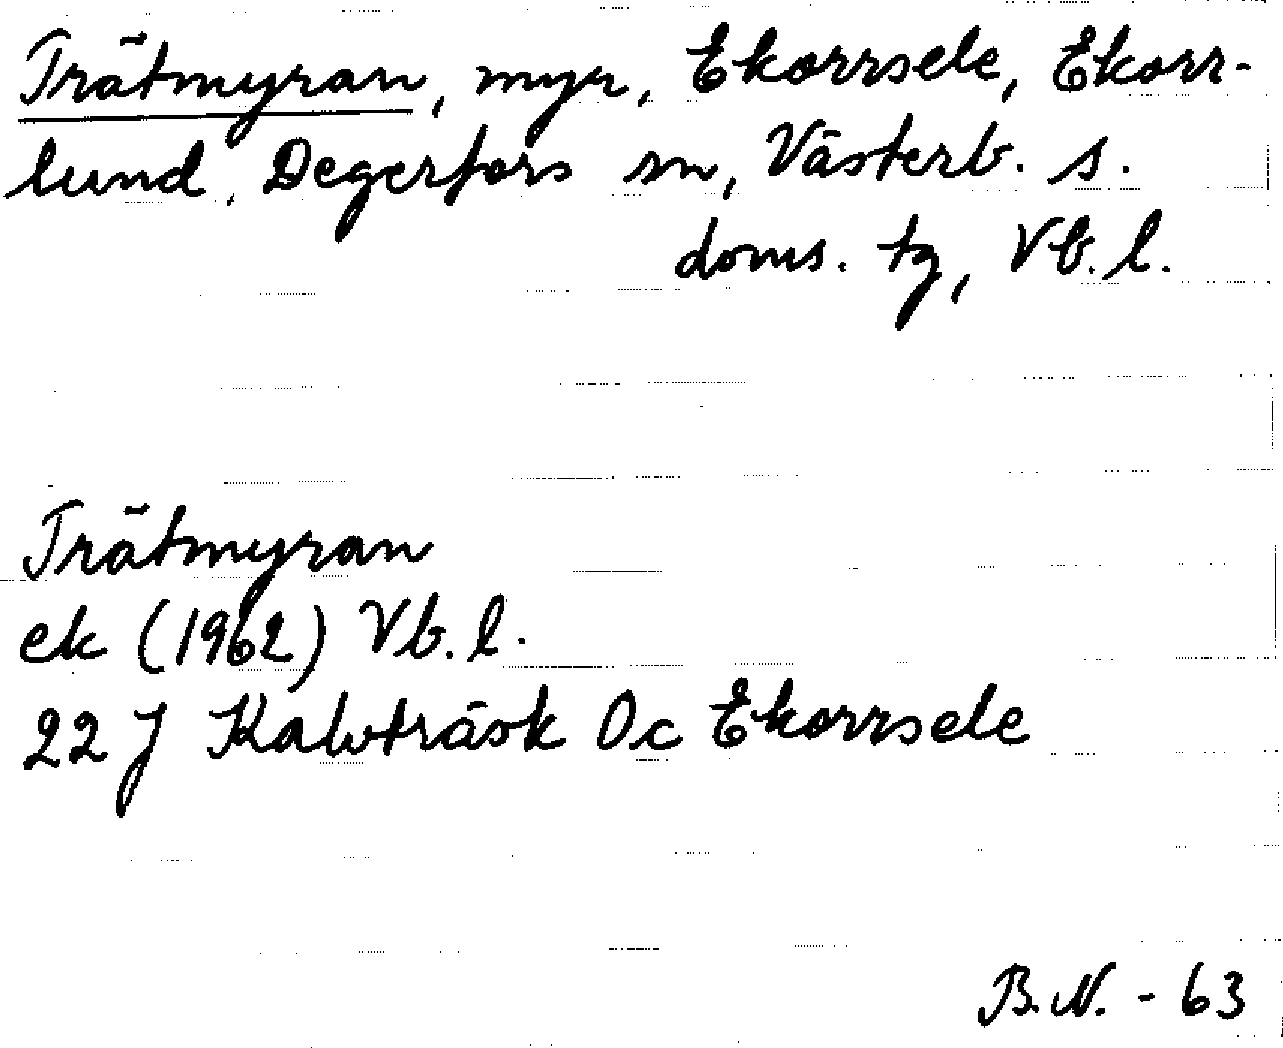 Trätmyran, myr, Ekorrsele, Ekorr-
lund, Degerfors sn, Västerb. s.
doms. tg, Vb. l.
Trätmyran
ek (1962) Vb. l.
22 J Kalvträsk 0c Ekorrsele
B.N. - 63